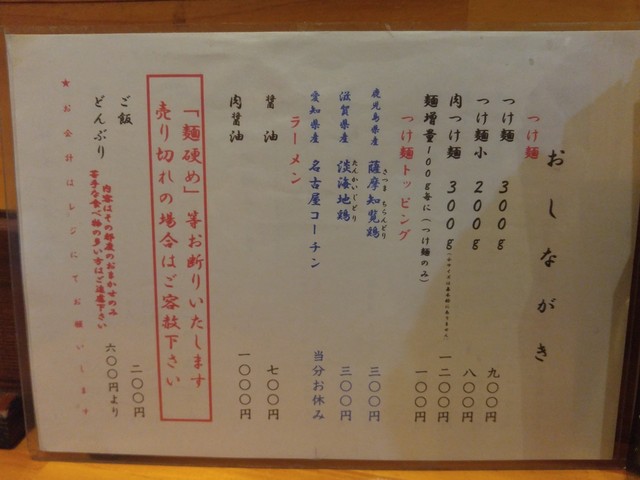 おしながき
つけ麺
つけ麺 300g 九〇〇円
つけ麺小 200g 八〇〇円
肉つけ麺 300g 一二〇〇円
麺増量100g毎に(つけ麺のみ) 一〇〇円
つけ麺トッピング
鹿児島県産 薩摩知覧鶏 三〇〇円
さつま ちらんどり
滋賀県産 淡海地鶏 三〇〇円
たんかいじどり
愛知県産 名古屋コーチン 当分お休み
ラーメン
醤油 七〇〇円
肉醤油 一〇〇〇円
「麺硬め」等お断りいたします
売り切れの場合はご容赦下さい
ご飯 二〇〇円
どんぶり 六〇〇円より
内容はその都度のおまかせのみ
苦手な食べ物の多い方はご遠慮下さい
★お会計はレジにてお願いします